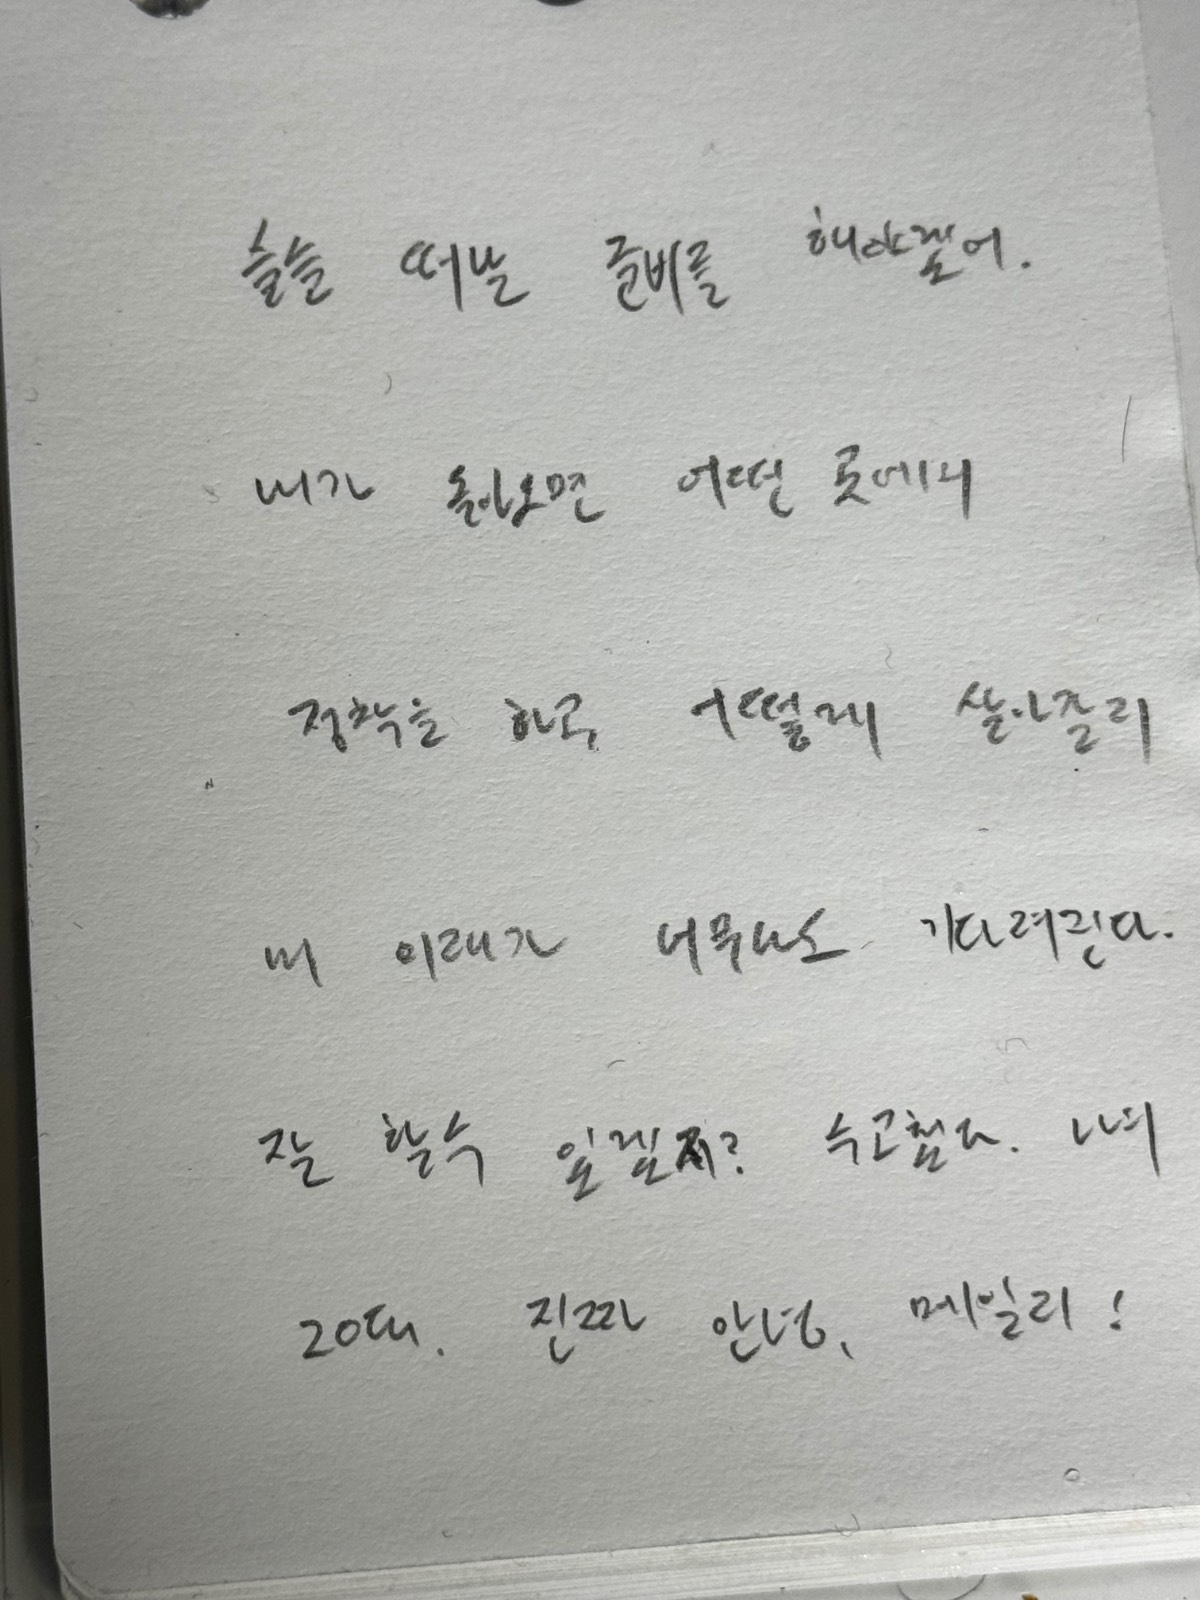 슬슬 떠날 준비를 해야겠어.
내가 돌아오면 어떤 곳에서
정착을 하고, 어떻게 살아갈지
내 미래가 너무나도 기다려진다.
잘 할수 있겠지? 수고했다. 나의
20대. 진짜 안녕, 메일리!